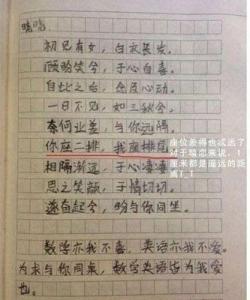 初见有女，白衣长发。
顾盼笑兮，于心自喜。
自此之后，念及心动。
一日不见，如三秋兮。
奈何业差，与你远隔。
你座二排，我座排尾。
相隔渐远，于心凄凄。
思之笑颜，于情切切。
遂奋起兮，盼与你同坐。
数学亦我不喜，英语亦我不爱。
为求与你同桌，数学英语皆为我爱
也。
座位差得也忒远了
对于暗恋来说，1
厘米都是遥远的距
离T_T